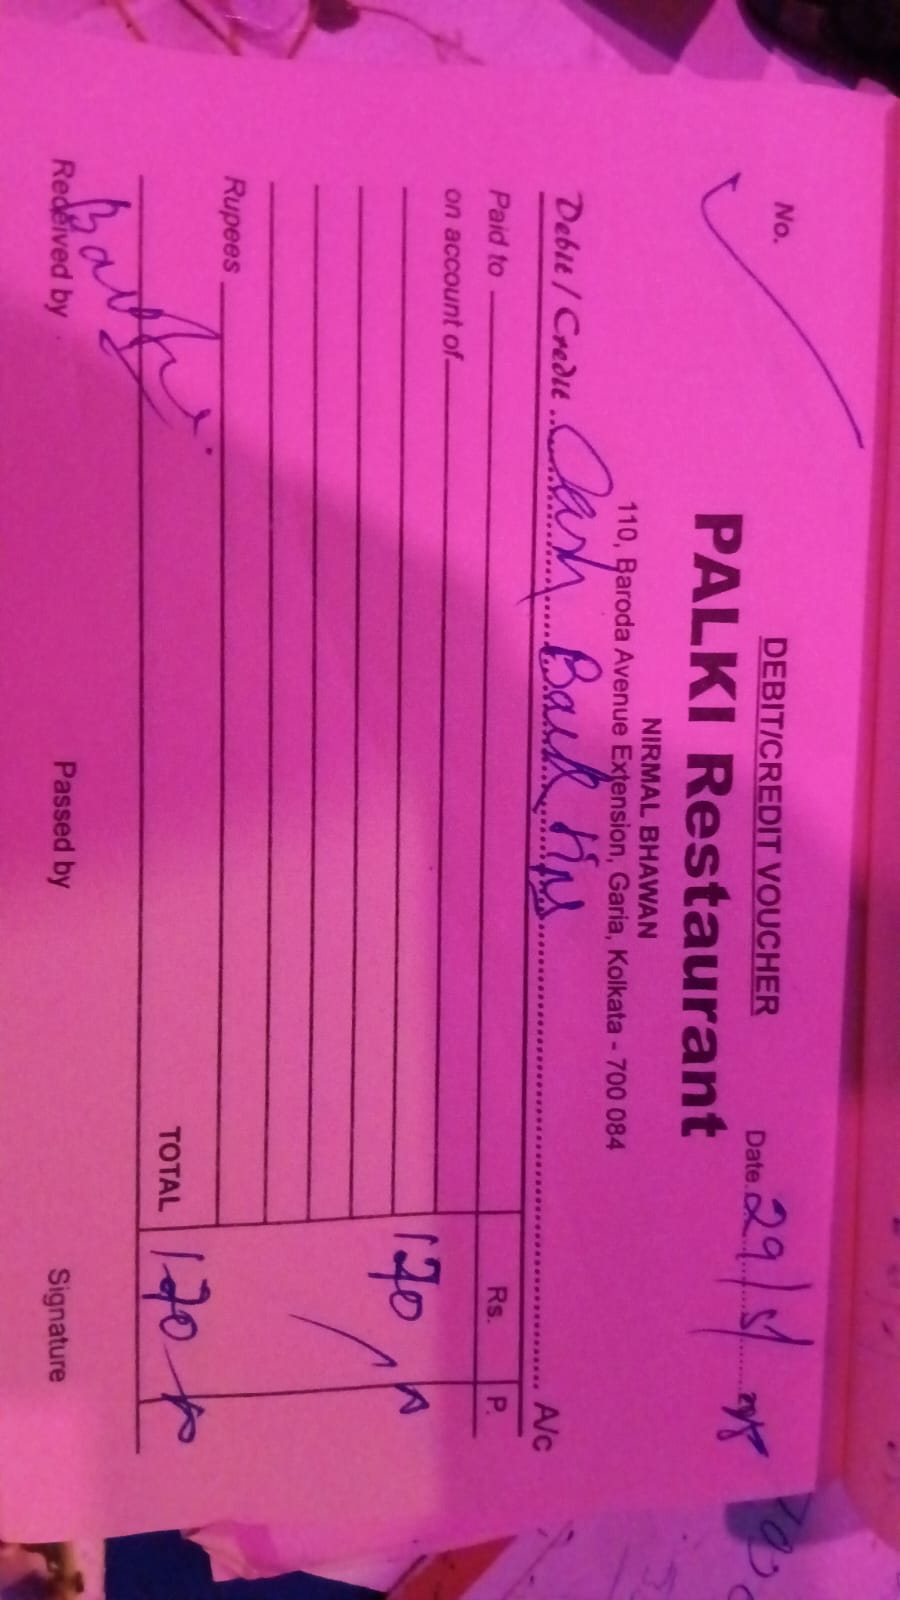 DEBIT/CREDIT VOUCHER
No. Date 29/5/
PALKI Restaurant
NIRMAL BHAWAN
110, Baroda Avenue Extension, Garia, Kolkata - 700 084
Debit / Credit Cash A/c
Paid to Rs. P.
on account of
170
Rupees
TOTAL 170
Received by Passed by Signature